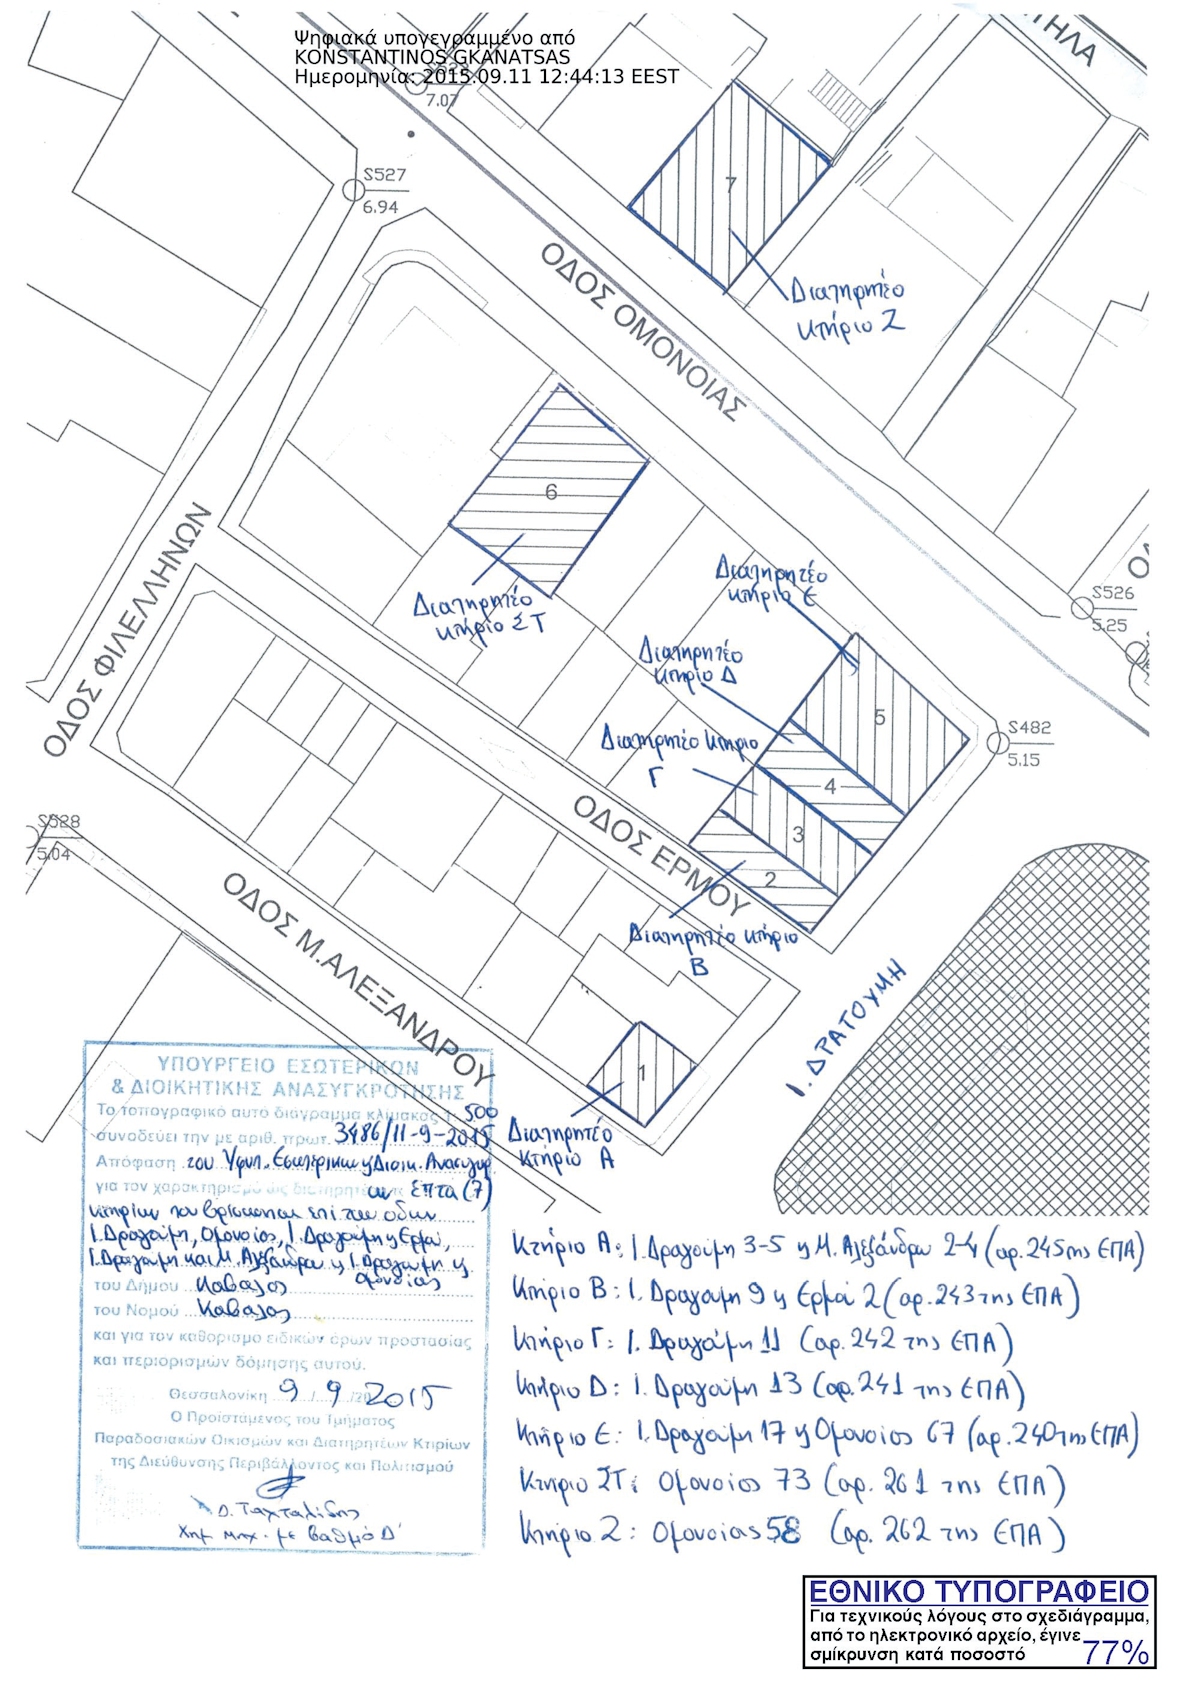 Ψηφιακά υπογεγραμμένο από
KONSTANTINOS GKANATSAS
Ημερομηνία: 2015.09.11 12:44:13 EEST
7.07
S527
6.94
7
Διατηρητέο
κτήριο Ζ
ΟΔΟΣ ΟΜΟΝΟΙΑΣ
6
Διατηρητέο
κτήριο ΣΤ
ΟΔΟΣ ΦΙΛΕΛΛΗΝΩΝ
Διατηρητέο
κτήριο Ε
S526
5.25
Διατηρητέο
κτήριο Δ
5
S482
5.15
Διατηρητέο κτήριο
Γ
4
3
2
ΟΔΟΣ ΕΡΜΟΥ
Διατηρητέο κτήριο
Β
S528
5.04
ΟΔΟΣ Μ.ΑΛΕΞΑΝΔΡΟΥ
Ι. ΔΡΑΓΟΥΜΗ
1
Διατηρητέο
Κτήριο Α
ΥΠΟΥΡΓΕΙΟ ΕΣΩΤΕΡΙΚΩΝ
& ΔΙΟΙΚΗΤΙΚΗΣ ΑΝΑΣΥΓΚΡΟΤΗΣΗΣ
Το τοπογραφικό αυτό διάγραμμα κλίμακος 1: 500
συνοδεύει την με αριθ. πρωτ. 3486/11-9-2015
Απόφαση του Υφυπ. Εσωτερικων & Διοικ. Ανασυγκρ.
για τον χαρακτηρισμό ως διατηρητέων Επτα (7)
κτηρίων που βρίσκονται επί των οδών
Ι. Δραγούμη, Ομονοίας, Ι. Δραγούμη & Ερμού,
Ι. Δραγούμη και Μ. Αλεξάνδρου & Ι. Δραγούμη &
Ομονοίας
του Δήμου Καβάλας
του Νομού Καβάλας
και για τον καθορισμό ειδικών όρων προστασίας
και περιορισμών δόμησης αυτού.
Θεσσαλονίκη 9/9/2015
Ο Προϊστάμενος του Τμήματος
Παραδοσιακών Οικισμών και Διατηρητέων Κτιρίων
της Διεύθυνσης Περιβάλλοντος και Πολιτισμού
Δ. Ταχταλίδης
Χημ. μηχ. με βαθμό Δ'
Κτήριο Α: Ι. Δραγούμη 3-5 & Μ. Αλεξάνδρου 2-4 (αρ. 245 της ΕΠΑ)
Κτήριο Β: Ι. Δραγούμη 9 & Ερμού 2 (αρ. 243 της ΕΠΑ)
Κτήριο Γ: Ι. Δραγούμη 11 (αρ. 242 της ΕΠΑ)
Κτήριο Δ: Ι. Δραγούμη 13 (αρ. 241 της ΕΠΑ)
Κτήριο Ε: Ι. Δραγούμη 17 & Ομονοίας 67 (αρ. 240 της ΕΠΑ)
Κτήριο ΣΤ: Ομονοίας 73 (αρ. 261 της ΕΠΑ)
Κτήριο Ζ: Ομονοίας 58 (αρ. 262 της ΕΠΑ)
ΕΘΝΙΚΟ ΤΥΠΟΓΡΑΦΕΙΟ
Για τεχνικούς λόγους στο σχεδιάγραμμα,
από το ηλεκτρονικό αρχείο, έγινε
σμίκρυνση κατά ποσοστό 77%